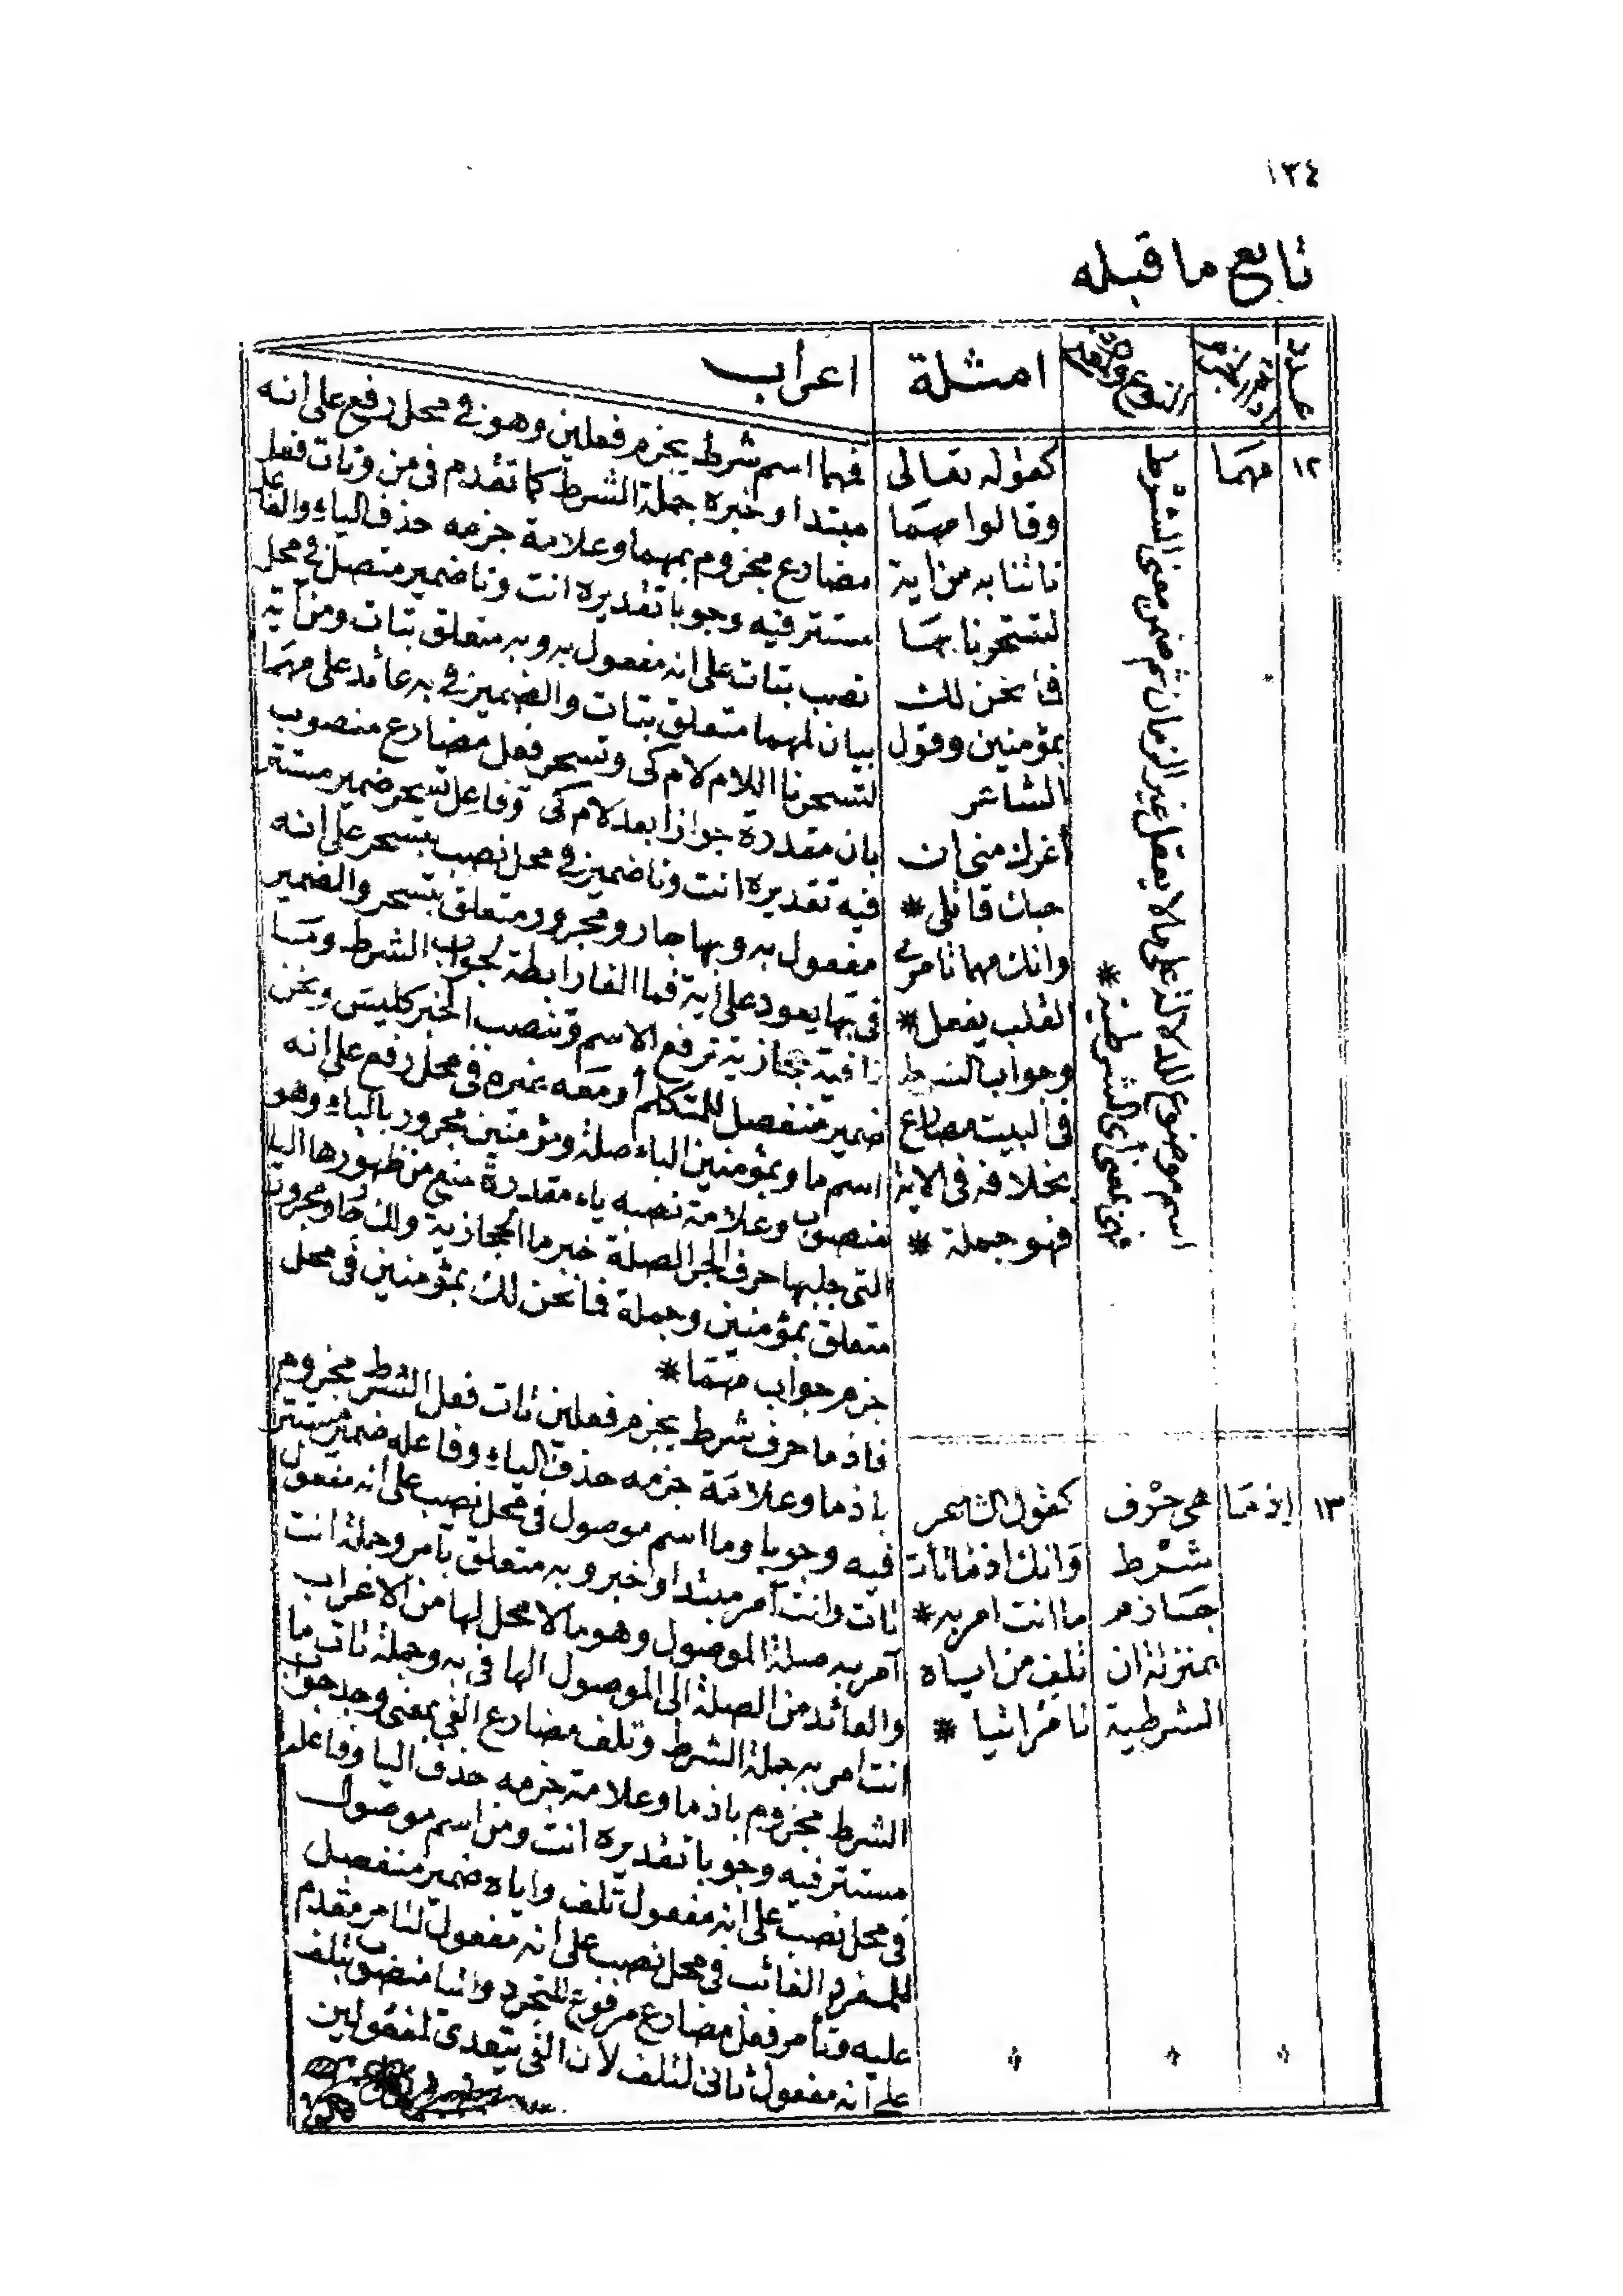 ١٣٤
تابع ما قبله
عدد
النوع
امثلة
اعراب
١٢
مهما
اسم موضوع للدلالة على ما لا يعقل غير الزمان ثم ضمن معنى الشرط
الشرطية *
كقوله تعالى
وقالوا مهما
تاتنا به من اية
لتسحرنا بها
فما نحن لك
بمؤمنين وقول
الشاعر
أغرك منى ان
حبك قاتلى *
وانك مهما تامرى
القلب يفعل *
وجواب الشرط
فى البيت مضارع
بخلافه فى الاية
فهو جملة *
فمهما اسم شرط يجزم فعلين وهو فى محل رفع على انه
مبتدا وخبره جملة الشرط كما تقدم فى من وتات فعل
مضارع مجزوم بمهما وعلامة جزمه حذف الياء والفاعل
مستتر فيه وجوبا تقديره انت ونا ضمير متصل فى محل
نصب بتات على انه مفعول به وبه متعلق بتات ومن آية
بيان لمهما متعلق بتات والضمير فى به عائد على مهما
لتسحرنا اللام لام كى وتسحر فعل مضارع منصوب
بان مقددرة جوازا بعد لام كى وفاعل تسحر ضمير مستتر
فيه تقديره انت ونا ضمير فى محل نصب بتسحر على انه
مفعول به وبها جار ومجرور متعلق بتسحر والضمير
فى بها يعود على آية فما الفا رابطة لجواب الشرط وما
نافية حجازية ترفع الاسم وتنصب الخبر كليس ونحن
ضمير منفصل للمتكلم أو معه غيره فى محل رفع على انه
اسم ما وبمؤمنين الباء صلة ومؤمنين مجرور بالباء وهو
منصوب وعلامة نصبه ياء مقدرة منع من ظهورها اليا
التى جلبها حرف الجر الصلة خبر ما الحجازية ولك جار ومجرور
متعلق بمؤمنين وجملة فما نحن لك بمؤمنين فى محل
جزم جواب مهما *
١٣
إذ ما
هى حرف
شرط
جازم
بمنزلة ان
الشرطية
كقول الشاعر
وانك اذ ما تأت
ما انت امر به *
تلف من اياه
تامر اتيا *
فاذ ما حرف شرط يجزم فعلين تات فعل الشرط مجزوم
باذ ما وعلامة جزمه حذف الياء وفاعله ضمير مستتر
فيه وجوبا وما اسم موصول فى محل نصب على انه مفعول
تات وانت آمر مبتدا وخبر وبه متعلق بآمر وجملة انت
آمر به صلة الموصول وهو ما لا محل لها من الاعراب
والعائد من الصلة الى الموصول الها فى به وجملة تات ما
انت امر به جملة الشرط وتلف مضارع الفى بمعنى وجد جواب
الشرط مجزوم باذ ما وعلامة جزمه حذف اليا وفاعله
مستتر فيه وجوبا تقديره انت ومن اسم موصول
فى محل نصب على انه مفعول تلف واياه ضمير منفصل
للمفرد الغائب فى محل نصب على انه مفعول لتامر مقدم
عليه وتأمر فعل مضارع مرفوع للتجرد واتيا منصوب بتلف
على انه مفعول ثانى لتلف لان الفى يتعدى لمفعولين